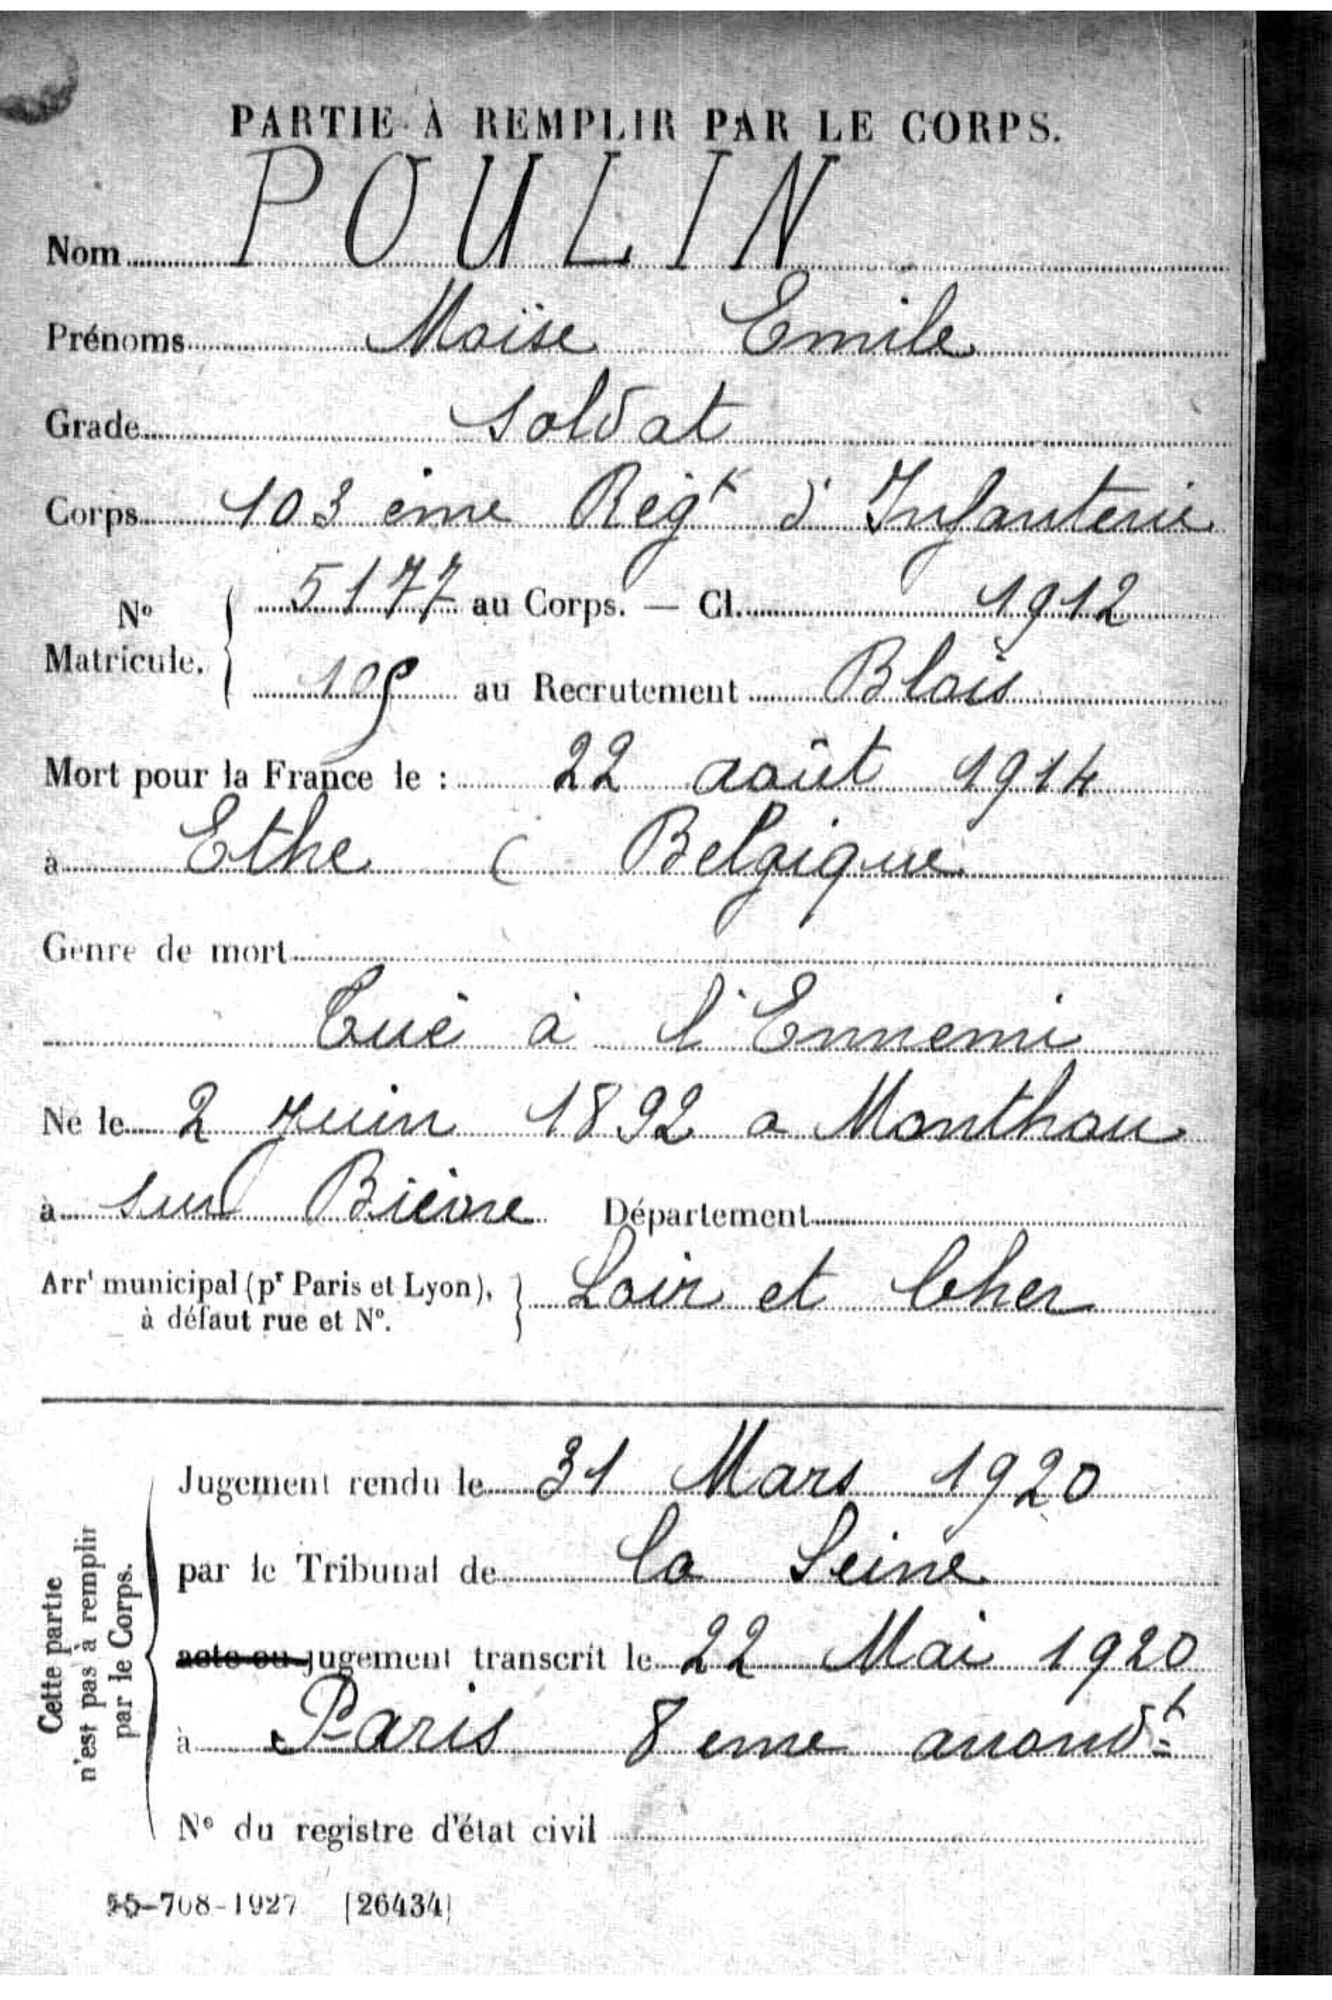 PARTIE À REMPLIR PAR LE CORPS.
Nom POULIN
Prénoms Moïse Emile
Grade soldat
Corps 103 ème Régt d'Infanterie
No Matricule. 5177 au Corps. — Cl. 1912
au Recrutement Blois
Mort pour la France le : 22 août 1914
à Ethe ( Belgique
Genre de mort
Tué à l'Ennemi
Né le 2 Juin 1892 a Monthou
à sur Bièvre Département
Arrt municipal (pr Paris et Lyon), à défaut rue et No. Loir et Cher
Cette partie n'est pas à remplir par le Corps.
Jugement rendu le 31 Mars 1920
par le Tribunal de la Seine
acte ou jugement transcrit le 22 Mai 1920
à Paris 8 eme arrondt
No du registre d'état civil
55-708-1927 [26434]